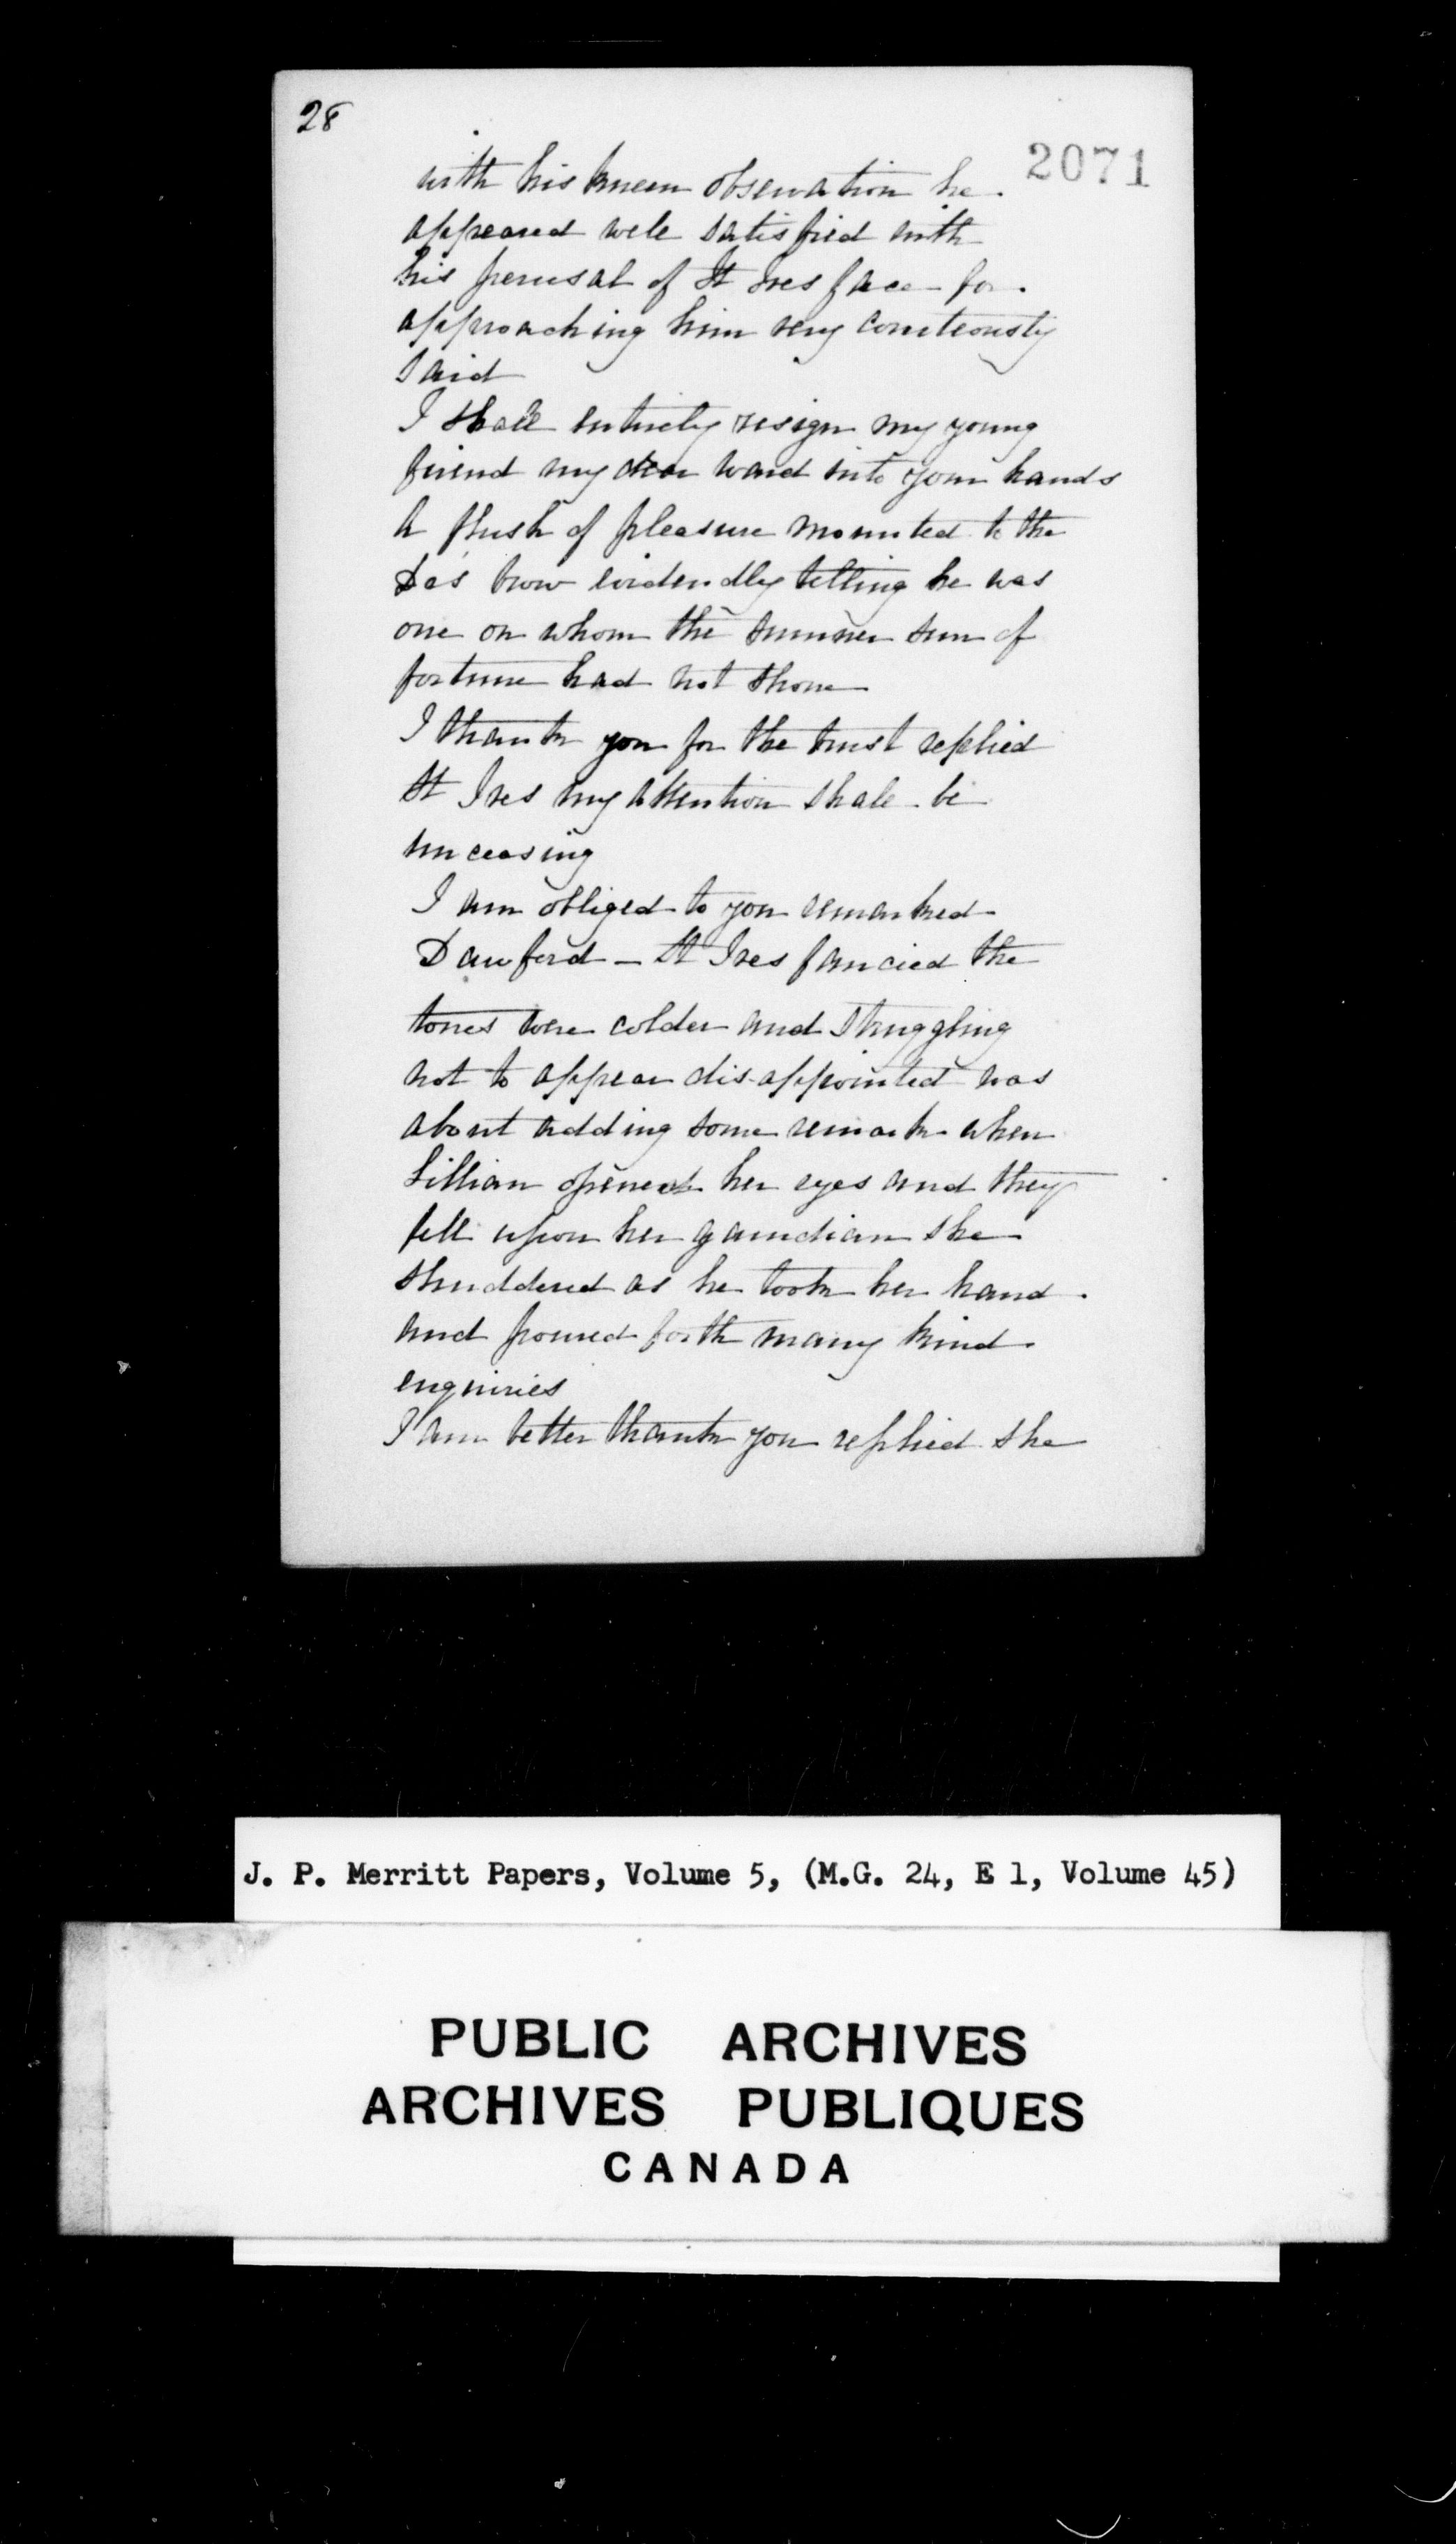 28
2071
with his kneen observation he
appeared well satisfied with
his perusal of St Ives face – for
approaching him very courteously
said
I shall entirely resign my young
friend my dear ward into your hands
A flush of pleasure mounted to the
Dr's brow evidendly telling he was
one on whom the summer sun of
fortune had not shone
I thank you for the trust replied
St Ives my attention shall be
unceasing
I am obliged to you remarked
Dawford – St Ives fancied the
tones were colder and struggling
not to appear disappointed was
about adding some remark when
Lillian opened her eyes and they
fell upon her gaurdian she
shuddered as he took her hand
and poured forth many kind
enquiries
I am better thank you replied she
J. P. Merritt Papers, Volume 5, (M.G. 24, E 1, Volume 45)
PUBLIC ARCHIVES
ARCHIVES PUBLIQUES
CANADA